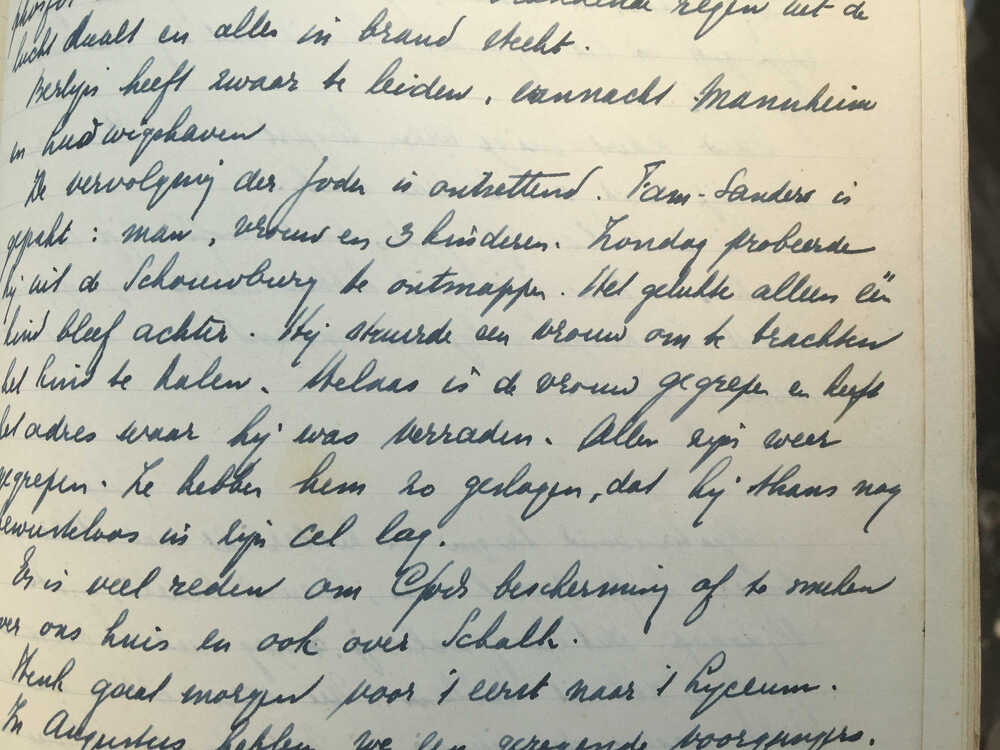 phosfor brandende regen uit de
lucht daalt en alles in brand steekt.
Berlijn heeft zwaar te leiden, vannacht Mannheim
en Ludwigshaven
De vervolging der Joden is ontzettend. Fam-Sanders is
gepakt: man, vrouw en 3 kinderen. Zondag probeerde
hij uit de Schouwburg te ontsnappen. Het gelukte alleen één
kind bleef achter. Hij stuurde een vrouw om te trachten
het kind te halen. Helaas is de vrouw gegrepen en heeft
het adres waar hij was verraden. Allen zijn weer
gegrepen. Ze hebben hem zo geslagen, dat hij thans nog
bewusteloos in zijn cel lag.
Er is veel reden om Gods bescherming af te smeken
over ons huis en ook over Schalk.
Henk gaat morgen voor 't eerst naar 't Lyceum.
In Augustus hebben we een gezegende